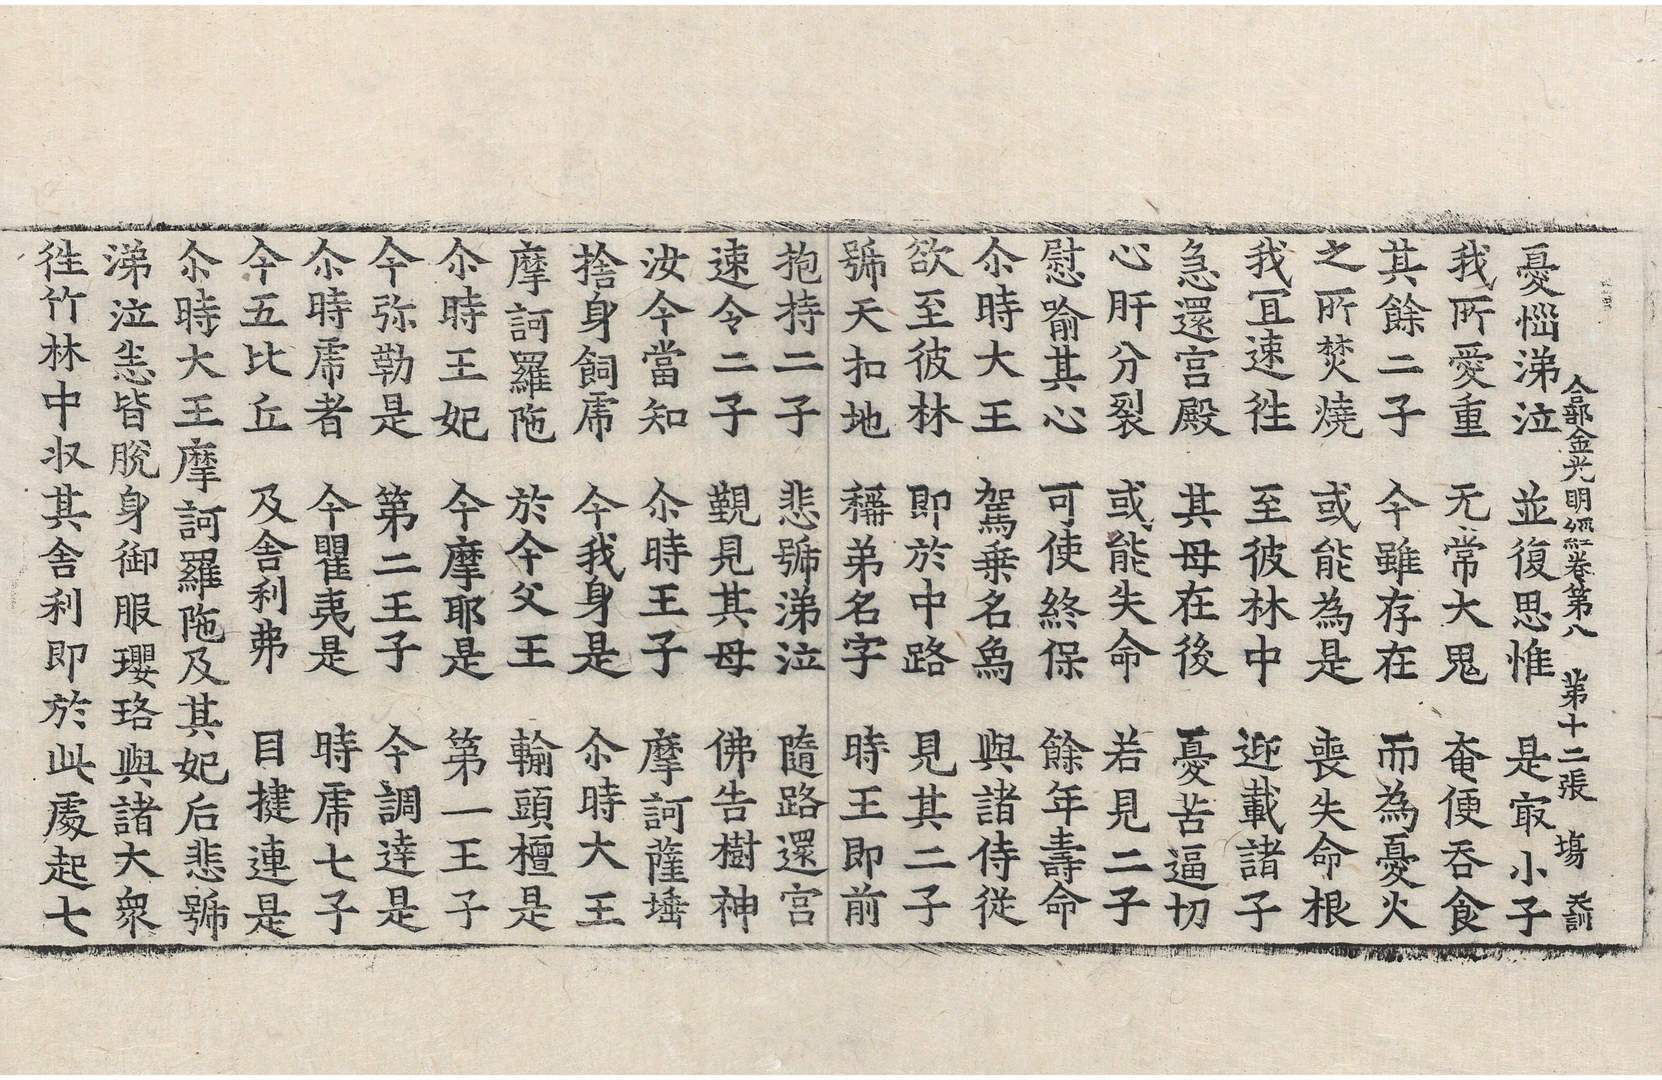 合部金光明經卷第八　第十二張　塲　天訓
憂惱涕泣　並復思惟　是㝡小子
我所愛重　无常大鬼　奄便吞食
其餘二子　今雖存在　而為憂火
之所焚燒　或能為是　喪失命根
我冝速徃　至彼林中　迎載諸子
急還宮殿　其母在後　憂苦逼切
心肝分裂　或能失命　若見二子
慰喻其心　可使終保　餘年壽命
尒時大王　駕乗名象　與諸侍從
欲至彼林　即於中路　見其二子
號天扣地　稱弟名字　時王即前
抱持二子　悲號涕泣　隨路還宮
速令二子　覲見其母　佛告樹神
汝今當知　尒時王子　摩訶薩埵
捨身飼虎　今我身是　尒時大王
摩訶羅陁　於今父王　輸頭檀是
尒時王妃　今摩耶是　第一王子
今弥勒是　第二王子　今調達是
尒時虎者　今瞿夷是　時虎七子
今五比丘　及舍利弗　目揵連是
尒時大王摩訶羅陁及其妃后悲號
涕泣悉皆脫身御服瓔珞與諸大衆
徃竹林中收其舍利即於此處起七